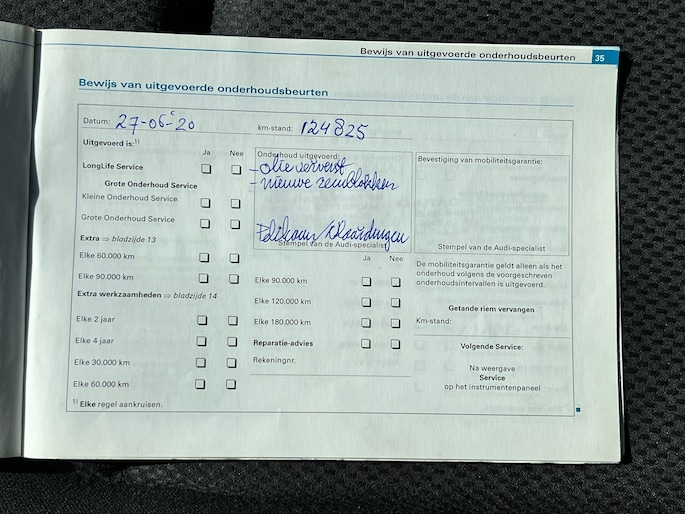 Bewijs van uitgevoerde onderhoudsbeurten 35
Bewijs van uitgevoerde onderhoudsbeurten
Datum: 27-06-'20 km-stand: 124825
Uitgevoerd is:¹⁾
Ja Nee
LongLife Service
Grote Onderhoud Service
Kleine Onderhoud Service
Grote Onderhoud Service
Extra ⇒ bladzijde 13
Elke 60.000 km
Elke 90.000 km
Extra werkzaamheden ⇒ bladzijde 14
Elke 2 jaar
Elke 4 jaar
Elke 30.000 km
Elke 60.000 km
¹⁾ Elke regel aankruisen.
Onderhoud uitgevoerd:
- olie ververst
- nieuwe remblokken
Vlaardingen
Stempel van de Audi-specialist
Ja Nee
Elke 90.000 km
Elke 120.000 km
Elke 180.000 km
Reparatie-advies
Rekeningnr.
Bevestiging van mobiliteitsgarantie:
Stempel van de Audi-specialist
De mobiliteitsgarantie geldt alleen als het
onderhoud volgens de voorgeschreven
onderhoudsintervallen is uitgevoerd.
Getande riem vervangen
Km-stand:
Volgende Service:
Na weergave
Service
op het instrumentenpaneel